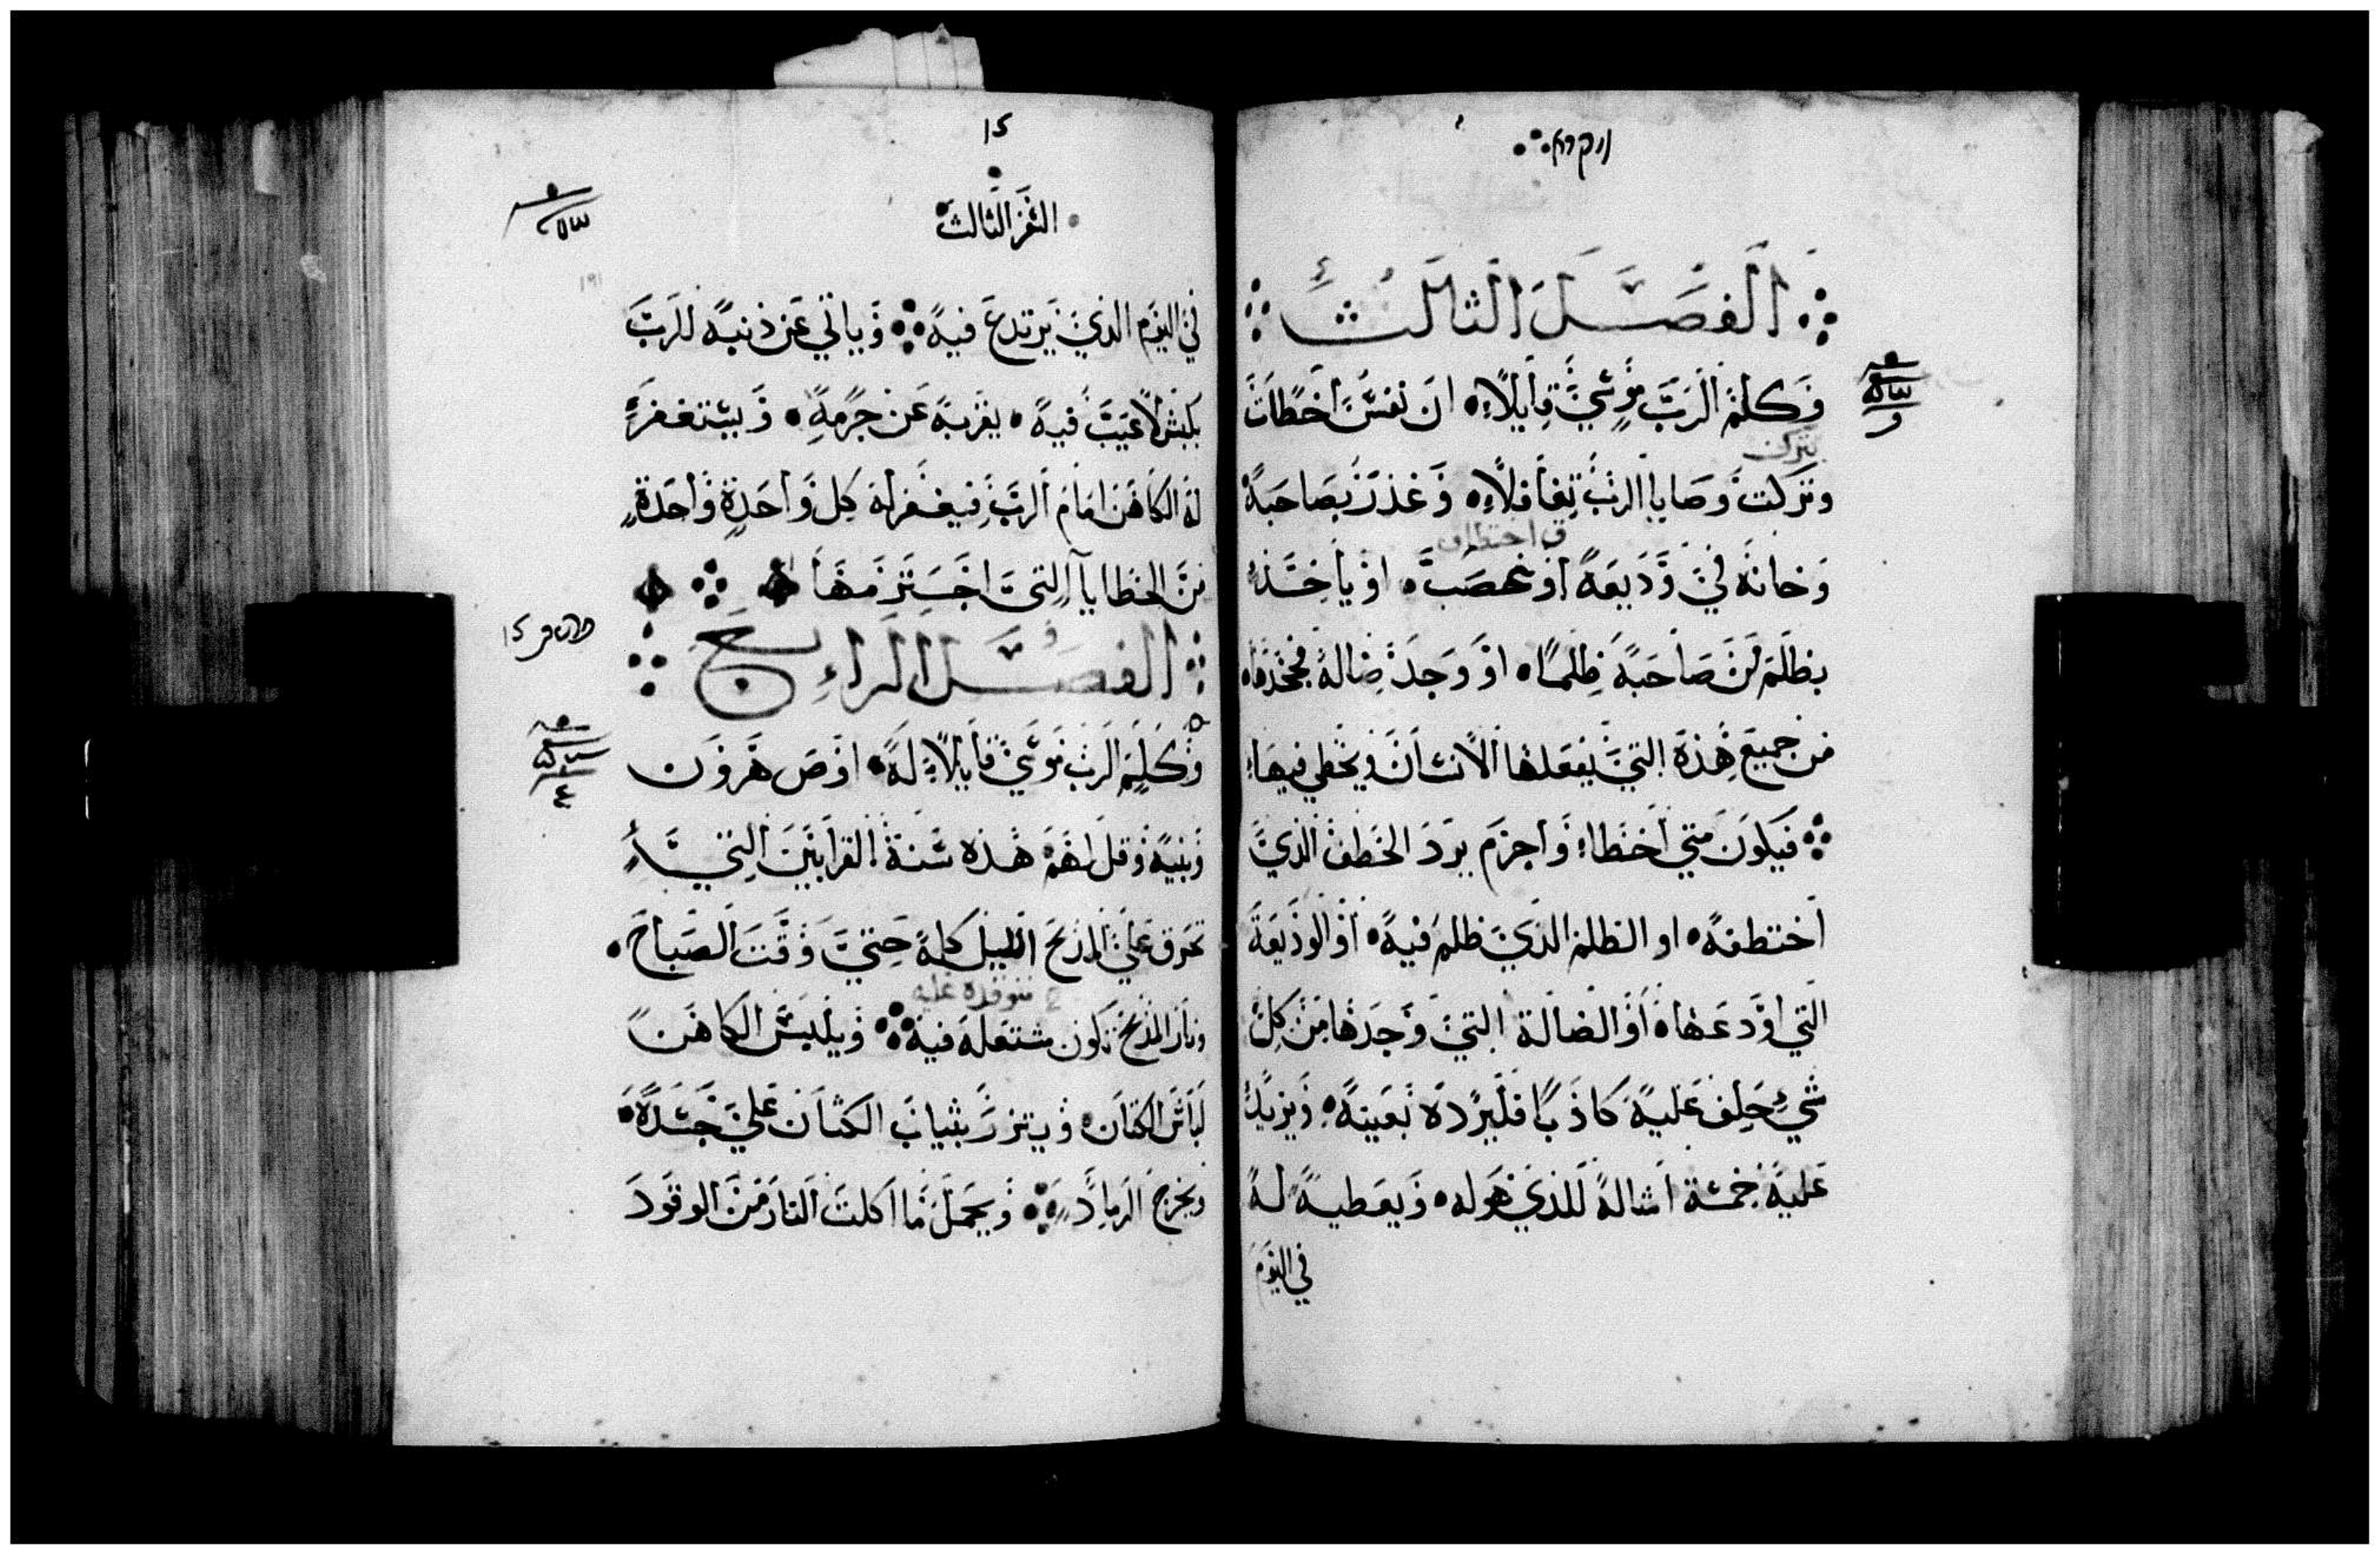 ויקרא
الفصل الثالث
وكلم الرب موسي قايلاً ان نفسً اخطات
تترك
وتركت وصايا الرب تغافلاً وغدرت بصاحبه
ق اختطاف
وخانه في وديعة او غصب او ياخد
بظلم من صاحبه ظلماً او وجد ضالة فجحدها
من جميع هذه التي يفعلها الانسان ويخطي فيها
فيكون متي اخطا واجرم يرد الخطف الذي
اختطفه او الظلم الذي ظلم فيه او الوديعة
التي اودعها او الضالة التي وجدها من كل
شي حلف عليه كاذبا فليرده بعينه ويزيد
عليه خمسة امثاله للذي هو له ويعطيه له
في اليوم
15
السفر الثالث
في اليوم الذي يرتدع فيه وياتي عن ذنبه للرب
بكبش لا عيب فيه يقربه عن جرمه ويستغفر
له الكاهن امام الرب فيغفر له كل واحدة واحدة
من الخطايا التي اجترمها
الفصل الرابع
وكلم الرب موسي قايلاً له اوص هرون
وبنيه وقل لهم هذه سنة القرابين التي
تحرق علي المذبح الليل كله حتي وقت الصباح
متوقده عليه
ونار المذبح تكون مشتعلة فيه ويلبس الكاهن
لباس الكتان ويتزر بثياب الكتان علي جسده
ويخرج الرماد ويحمل ما اكلت النار من الوقود